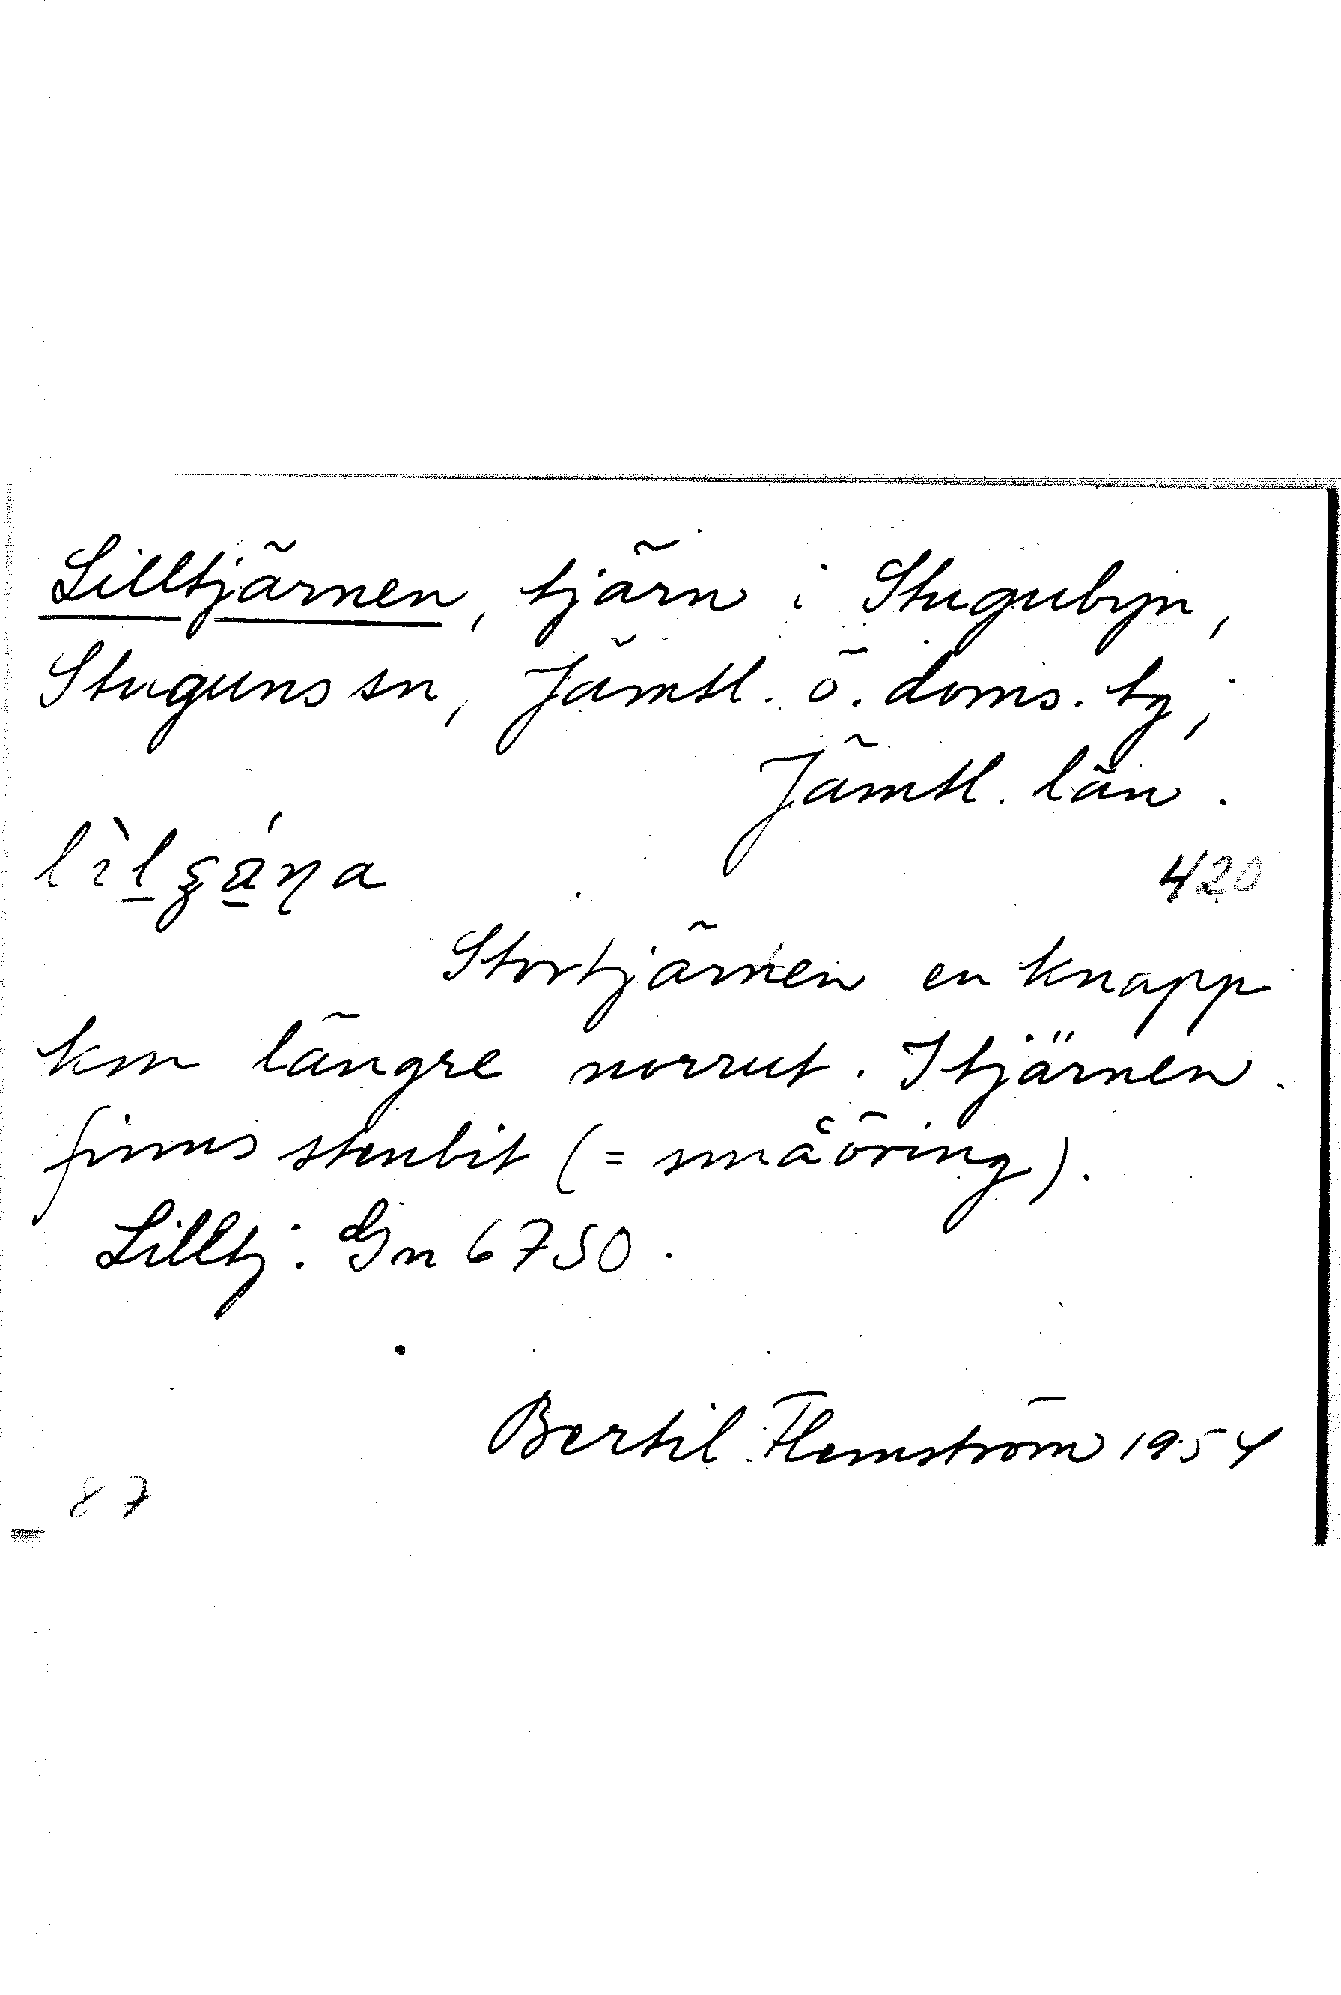 Lilltjärnen, tjärn i Stugubyn,
Stuguns sn, Jämtl. ö. doms. tg;
Jämtl. län.
420
Stortjärnen en knapp
km längre norrut. I tjärnen
finns stenbit (= småöring).
Lilltj: Gn 6750.
Bertil Flemström 1954
87